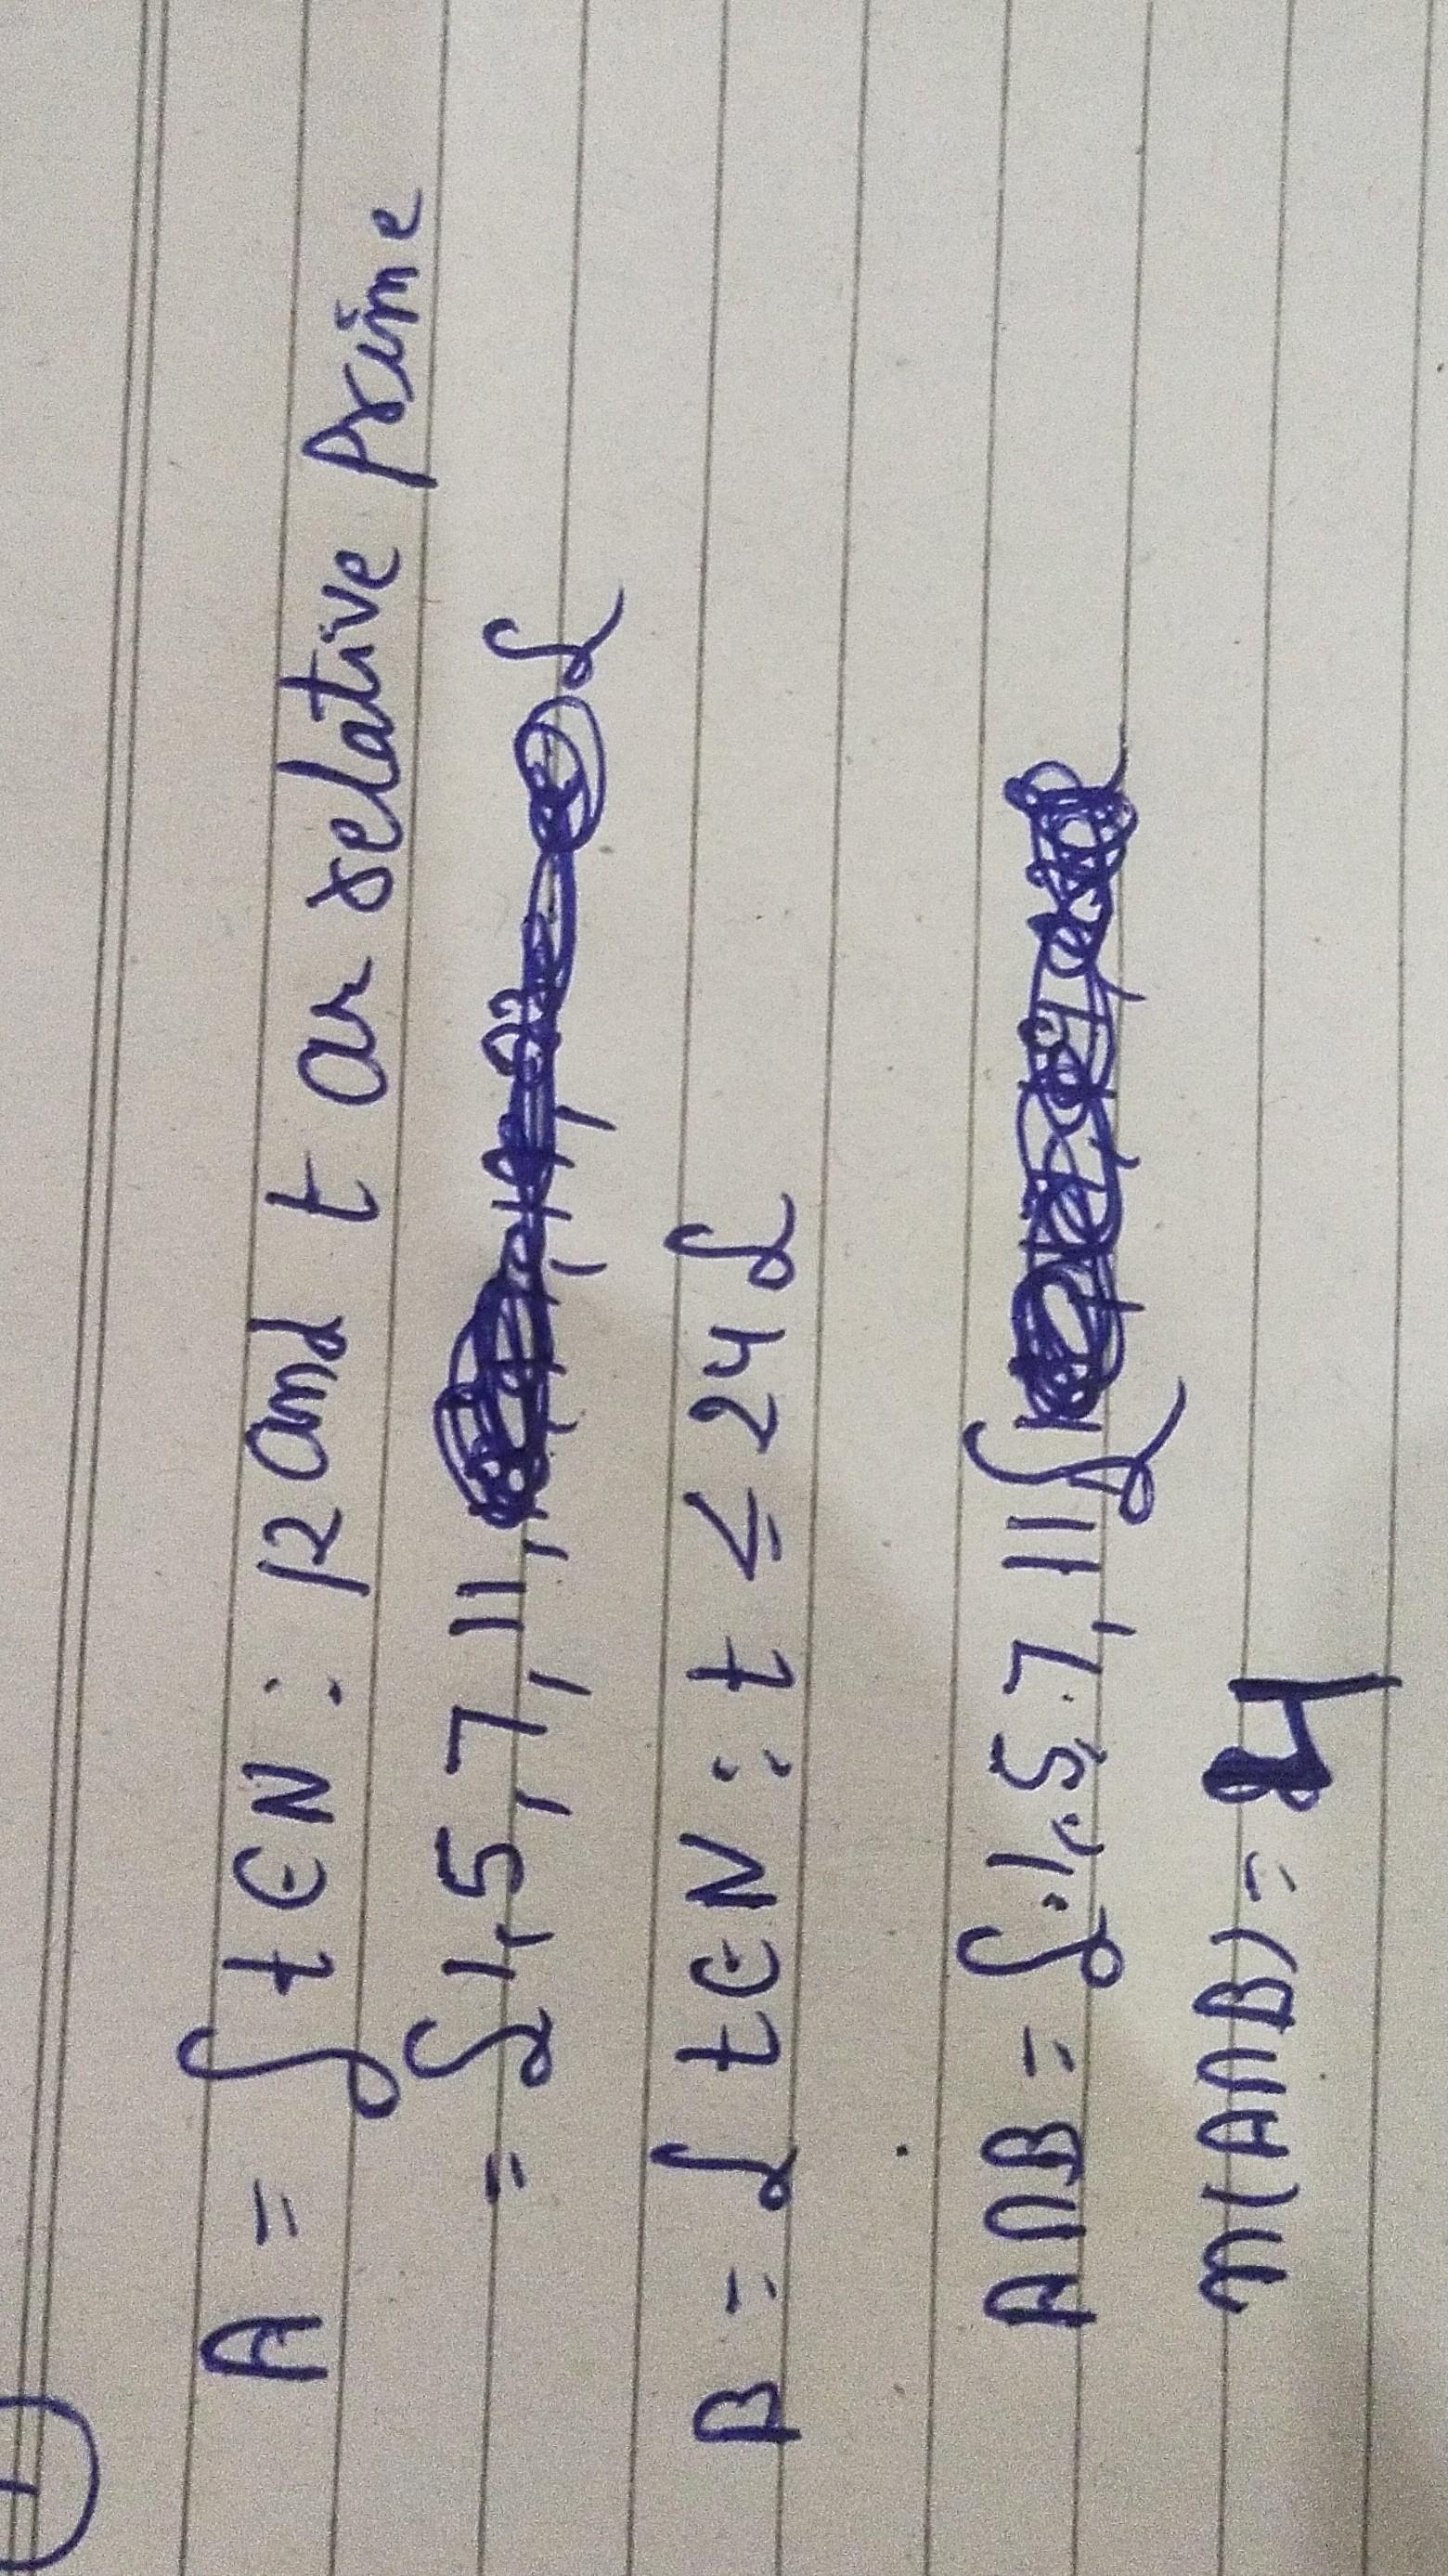 1
A = { t ∈ N : 12 and t ar relative prime
= {1, 5, 7, 11, }
B = { t ∈ N : t ≤ 24 }
A∩B = {1, 5, 7, 11}
n(A∩B) = 4